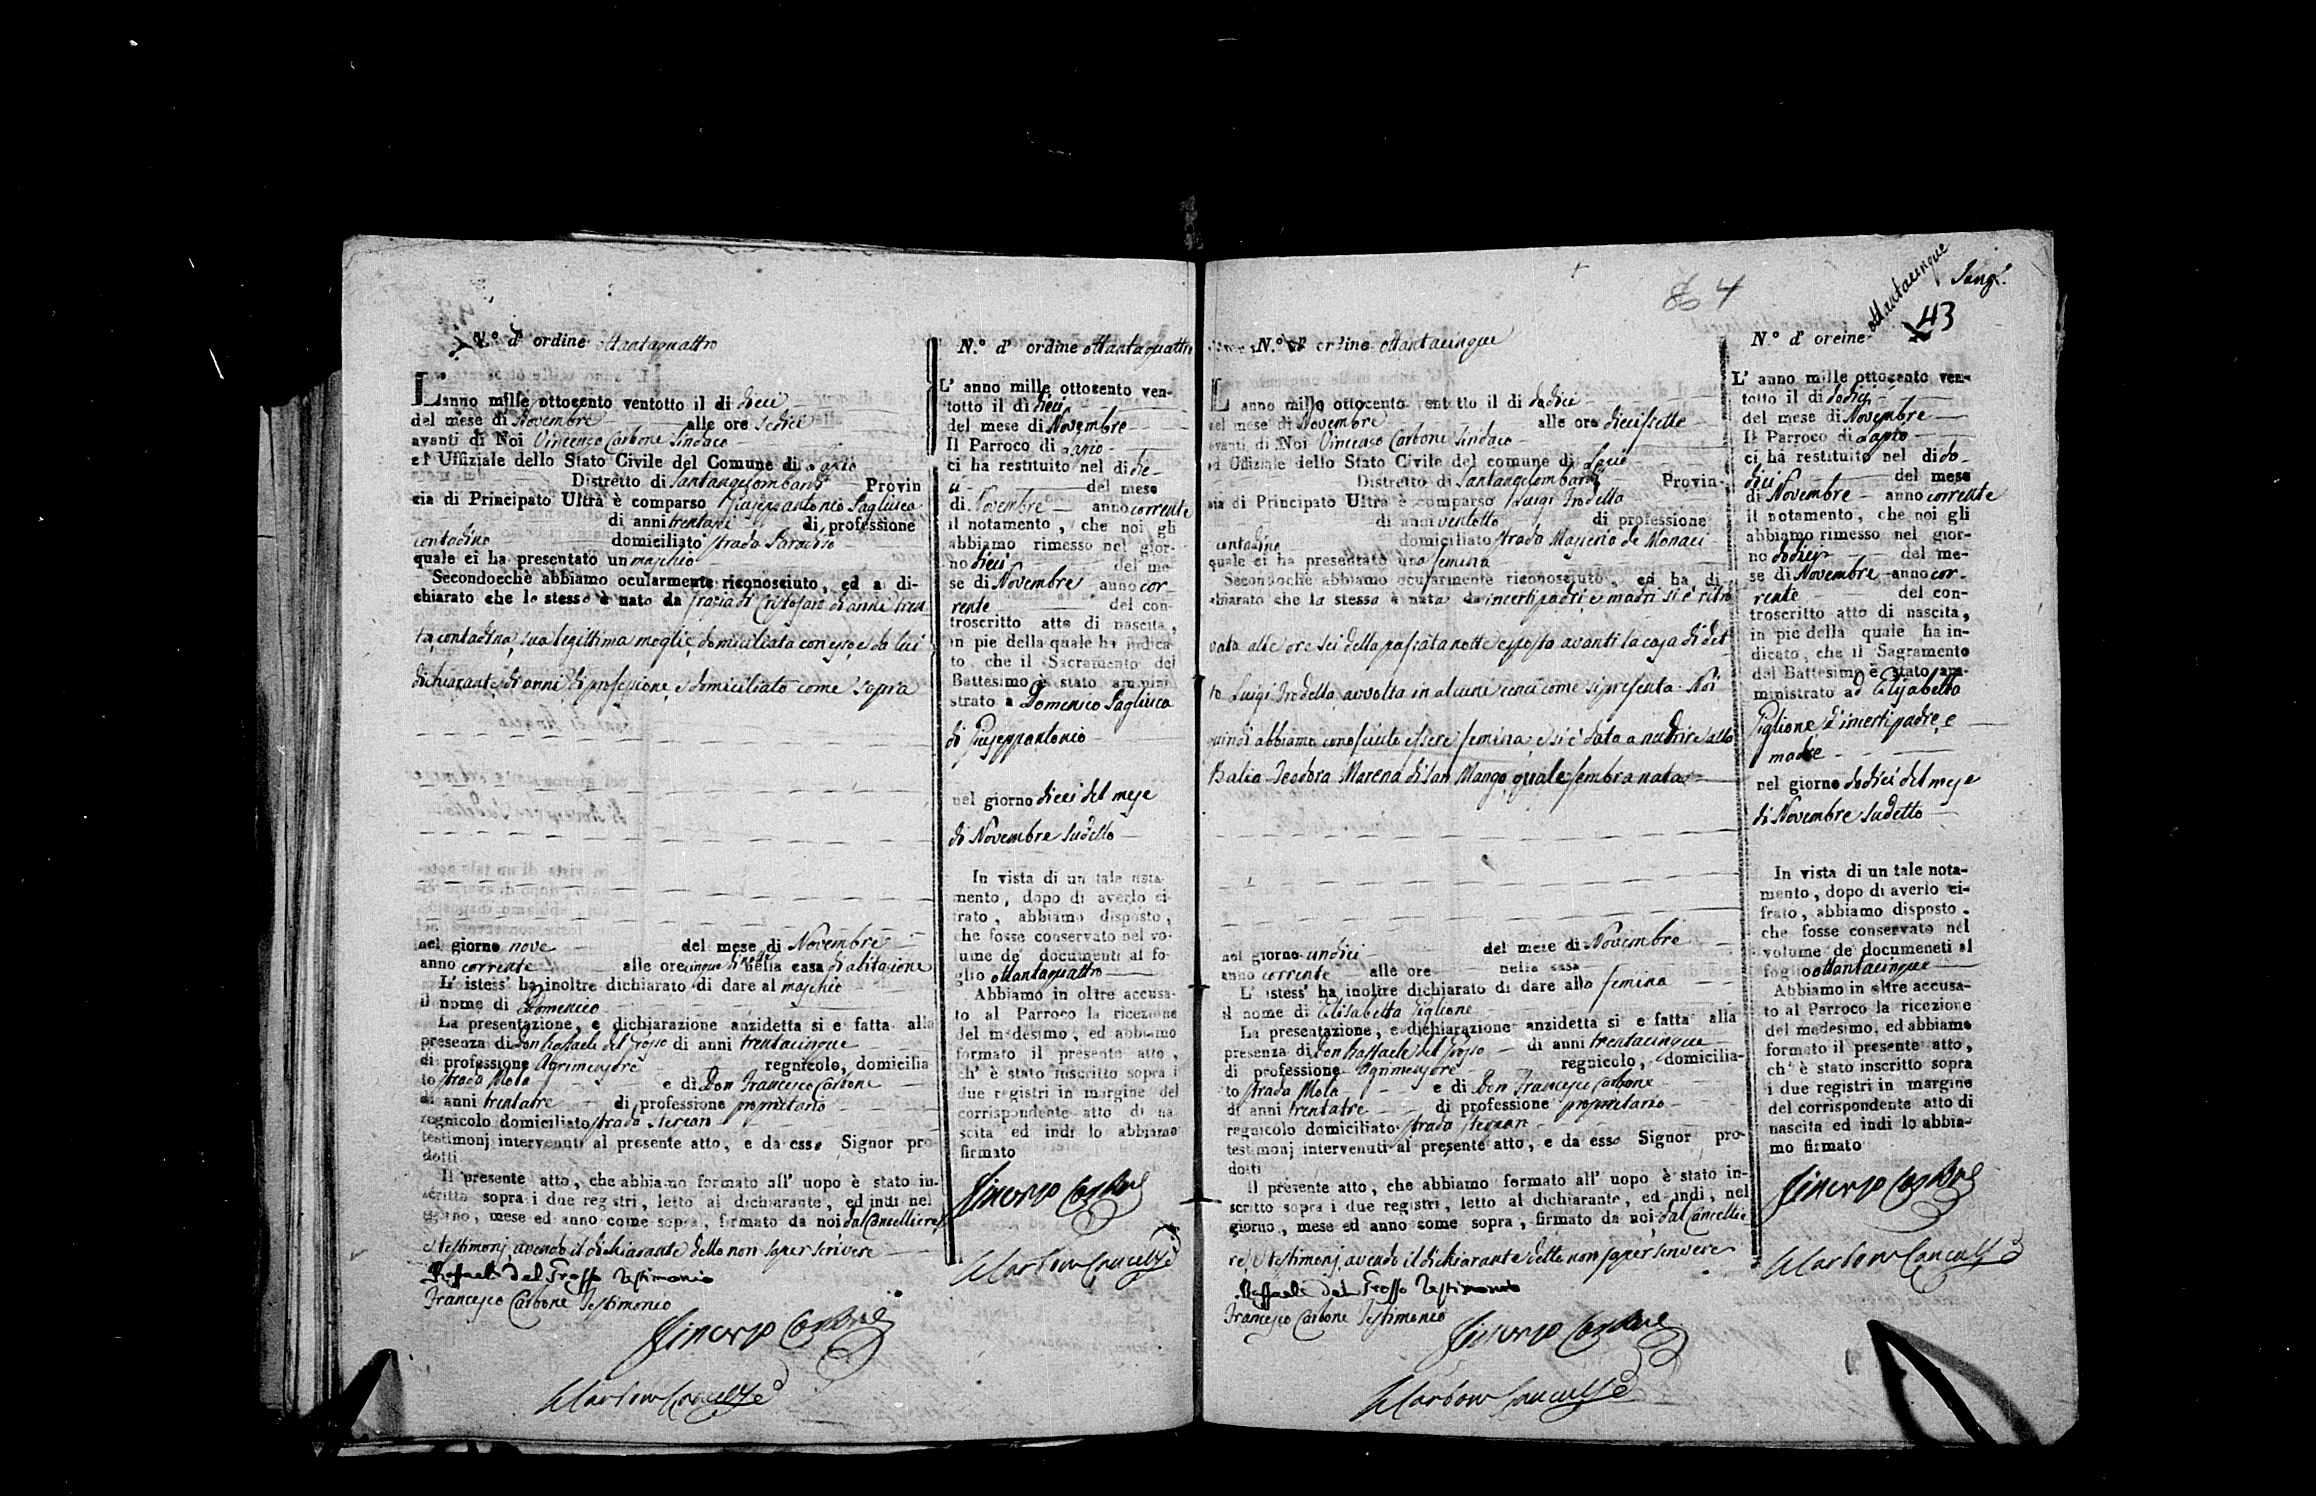 N.° d' ordine ottantaquattro
L'anno mille ottocento ventotto il di dieci
del mese di Novembre alle ore sedici
avanti di Noi Vincenzo Carbone Sindaco
ed Uffiziale dello Stato Civile del Comune di Lapio
Distretto di Santangiolombardi Provin
cia di Principato Ultra è comparso Giuseppantonio Pagliuca
di anni trentasei di professione
contadino domiciliato strada Paradiso
quale ci ha presentato un maschio
Secondocchè abbiamo ocularmente riconosciuto, ed a di-
chiarato che lo stesso è nato da Grazia di Cristofaro di anni tren
ta, contadina, sua legittima moglie, domiciliata con esso, e da lui
dichiarante, di anni, di professione, e domiciliato come sopra
nel giorno nove del mese di Novembre
anno corrente alle ore cinque di notte nella casa di abitazione
L' istess' ha inoltre dichiarato di dare al maschio
il nome di Domenico
La presentazione, e dichiarazione anzidetta si e fatta alla
presenza di Don Raffaele del Grosso di anni trentacinque
di professione Agrimensore regnicolo, domicilia
to strada Mola e di Don Francesco Carbone
di anni trentatre di professione proprietario
regnicolo domiciliato strada
testimonj intervenuti al presente atto, e da esso Signor pro
dotti
Il presente atto, che abbiamo formato all' uopo è stato in-
scritto sopra i due registri, letto al dichiarante, ed indi nel
giorno, mese ed anno come sopra, firmato da noi dal Cancelliere,
e testimonj, avendo il dichiarante detto non saper scrivere
Raffaele del Grosso Testimonio
Francesco Carbone Testimonio
Vincenzo Carbone
N.° d' ordine ottantaquattro
L' anno mille ottocento ven-
totto il di dieci
del mese di Novembre
Il Parroco di Lapio
ci ha restituito nel di die-
ci del mese
di Novembre anno corrente
il notamento, che noi gli
abbiamo rimesso nel gior-
no dieci del me-
se di Novembre anno cor-
rente del con-
troscritto atto di nascita,
in pie della quale ha indica
to che il Sacramento del
Battesimo è stato ammini
strato a Domenico Pagliuca
di Giuseppantonio
nel giorno dieci del mese
di Novembre sudetto
In vista di un tale nota-
mento, dopo di averlo ci-
frato, abbiamo disposto,
che fosse conservato nel vo-
lume de' documenti al fo-
glio ottantaquattro
Abbiamo in oltre accusa-
to al Parroco la ricezione
del medesimo, ed abbiamo
formato il presente atto,
ch' è stato inscritto sopra i
due registri in margine del
corrispondente atto di na
scita ed indi lo abbiamo
firmato
Vincenzo Carbone
4
ottantacinque
43
N.° d' ordine ottantacinque
L' anno mille ottocento ventotto il di dodici
del mese di Novembre alle ore diciissette
avanti di Noi Vincenzo Carbone Sindaco
ed Uffiziale dello Stato Civile del comune di Lapio
Distretto di Santangiolombardi Provin-
cia di Principato Ultra è comparso Luigi Trodella
di anni ventotto di professione
contadino domiciliato strada Masseria de Monaci
quale ci ha presentato una femina
Secondochè abbiamo ocularmente riconosciuto, ed ha di-
chiarato che la stessa è nata da incerti padri e madri si è ritro
vata alle ore sei della passata notte esposta avanti la casa di det
to Luigi Trodella, avvolta in alcuni cenci come si presenta. Noi
quindi abbiamo conosciuto essere femina, e si è data a nudrire alla
Balia Teodora Marena di San Mango, quale sembra nata
nel giorno undici del mese di Novembre
anno corrente alle ore nella casa
L' istess' ha inoltre dichiarato di dare alla femina
il nome di Elisabetta Giglione
La presentazione, e dichiarazione anzidetta si e fatta alla
presenza di Don Raffaele del Grosso di anni trentacinque
di professione Agrimensore regnicolo, domicilia-
to strada Mola e di Don Francesco Carbone
di anni trentatre di professione proprietario
regnicolo domiciliato strada
testimonj intervenuti al presente atto, e da esso Signor pro-
dotti
Il presente atto, che abbiamo formato all' uopo è stato in-
scritto sopra i due registri, letto al dichiarante, ed indi, nel
giorno, mese ed anno come sopra, firmato da noi, dal Cancellie
re, e testimonj, avendo il dichiarante detto non saper scrivere
Raffaele del Grosso Testimonio
Francesco Carbone Testimonio
Vincenzo Carbone
N.° d' oreine
L' anno mille ottocento ven-
totto il di dodici
del mese di Novembre
Il Parroco di Lapio
ci ha restituito nel di do-
dici del mese
di Novembre anno corrente
il notamento, che noi gli
abbiamo rimesso nel gior-
no dodici del me-
se di Novembre anno cor-
rente del con-
troscritto atto di nascita,
in pie della quale ha in-
dicato, che il Sagramento
del Battesimo è stato am-
ministrato ad Elisabetta
Giglione d'incerti padre, e
madre
nel giorno dodici del mese
di Novembre sudetto
In vista di un tale nota-
mento, dopo di averlo ci-
frato, abbiamo disposto.
che fosse conservato nel
volume de' documeneti al
foglio ottantacinque
Abbiamo in oltre accusa-
to al Parroco la ricezione
del medesimo, ed abbiamo
formato il presente atto,
ch' è stato inscritto sopra
i due registri in margine
del corrispondente atto di
nascita ed indi lo abbia-
mo firmato
Vincenzo Carbone